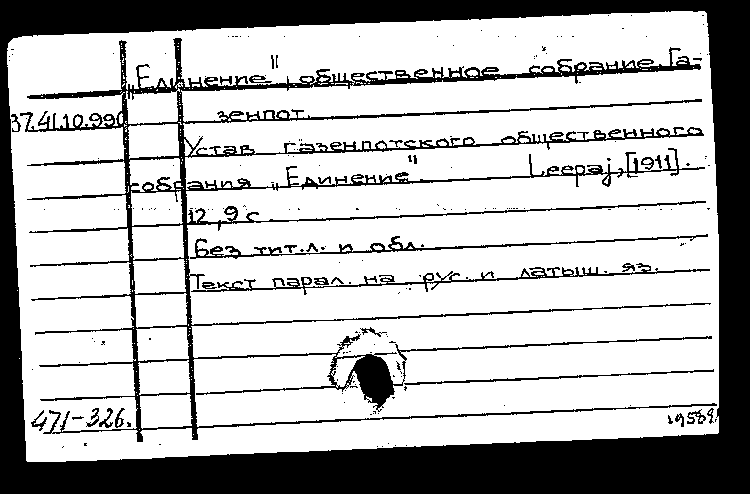 „Единение", общественное собрание. Га-
37.41.10.990 зенпот.
Устав газенпотского общественного
собрания „Единение". Leepaj, [1911].
12, 9 с.
Без тит.л. и обл.
Текст парал. на рус. и латыш. яз.
471-326.